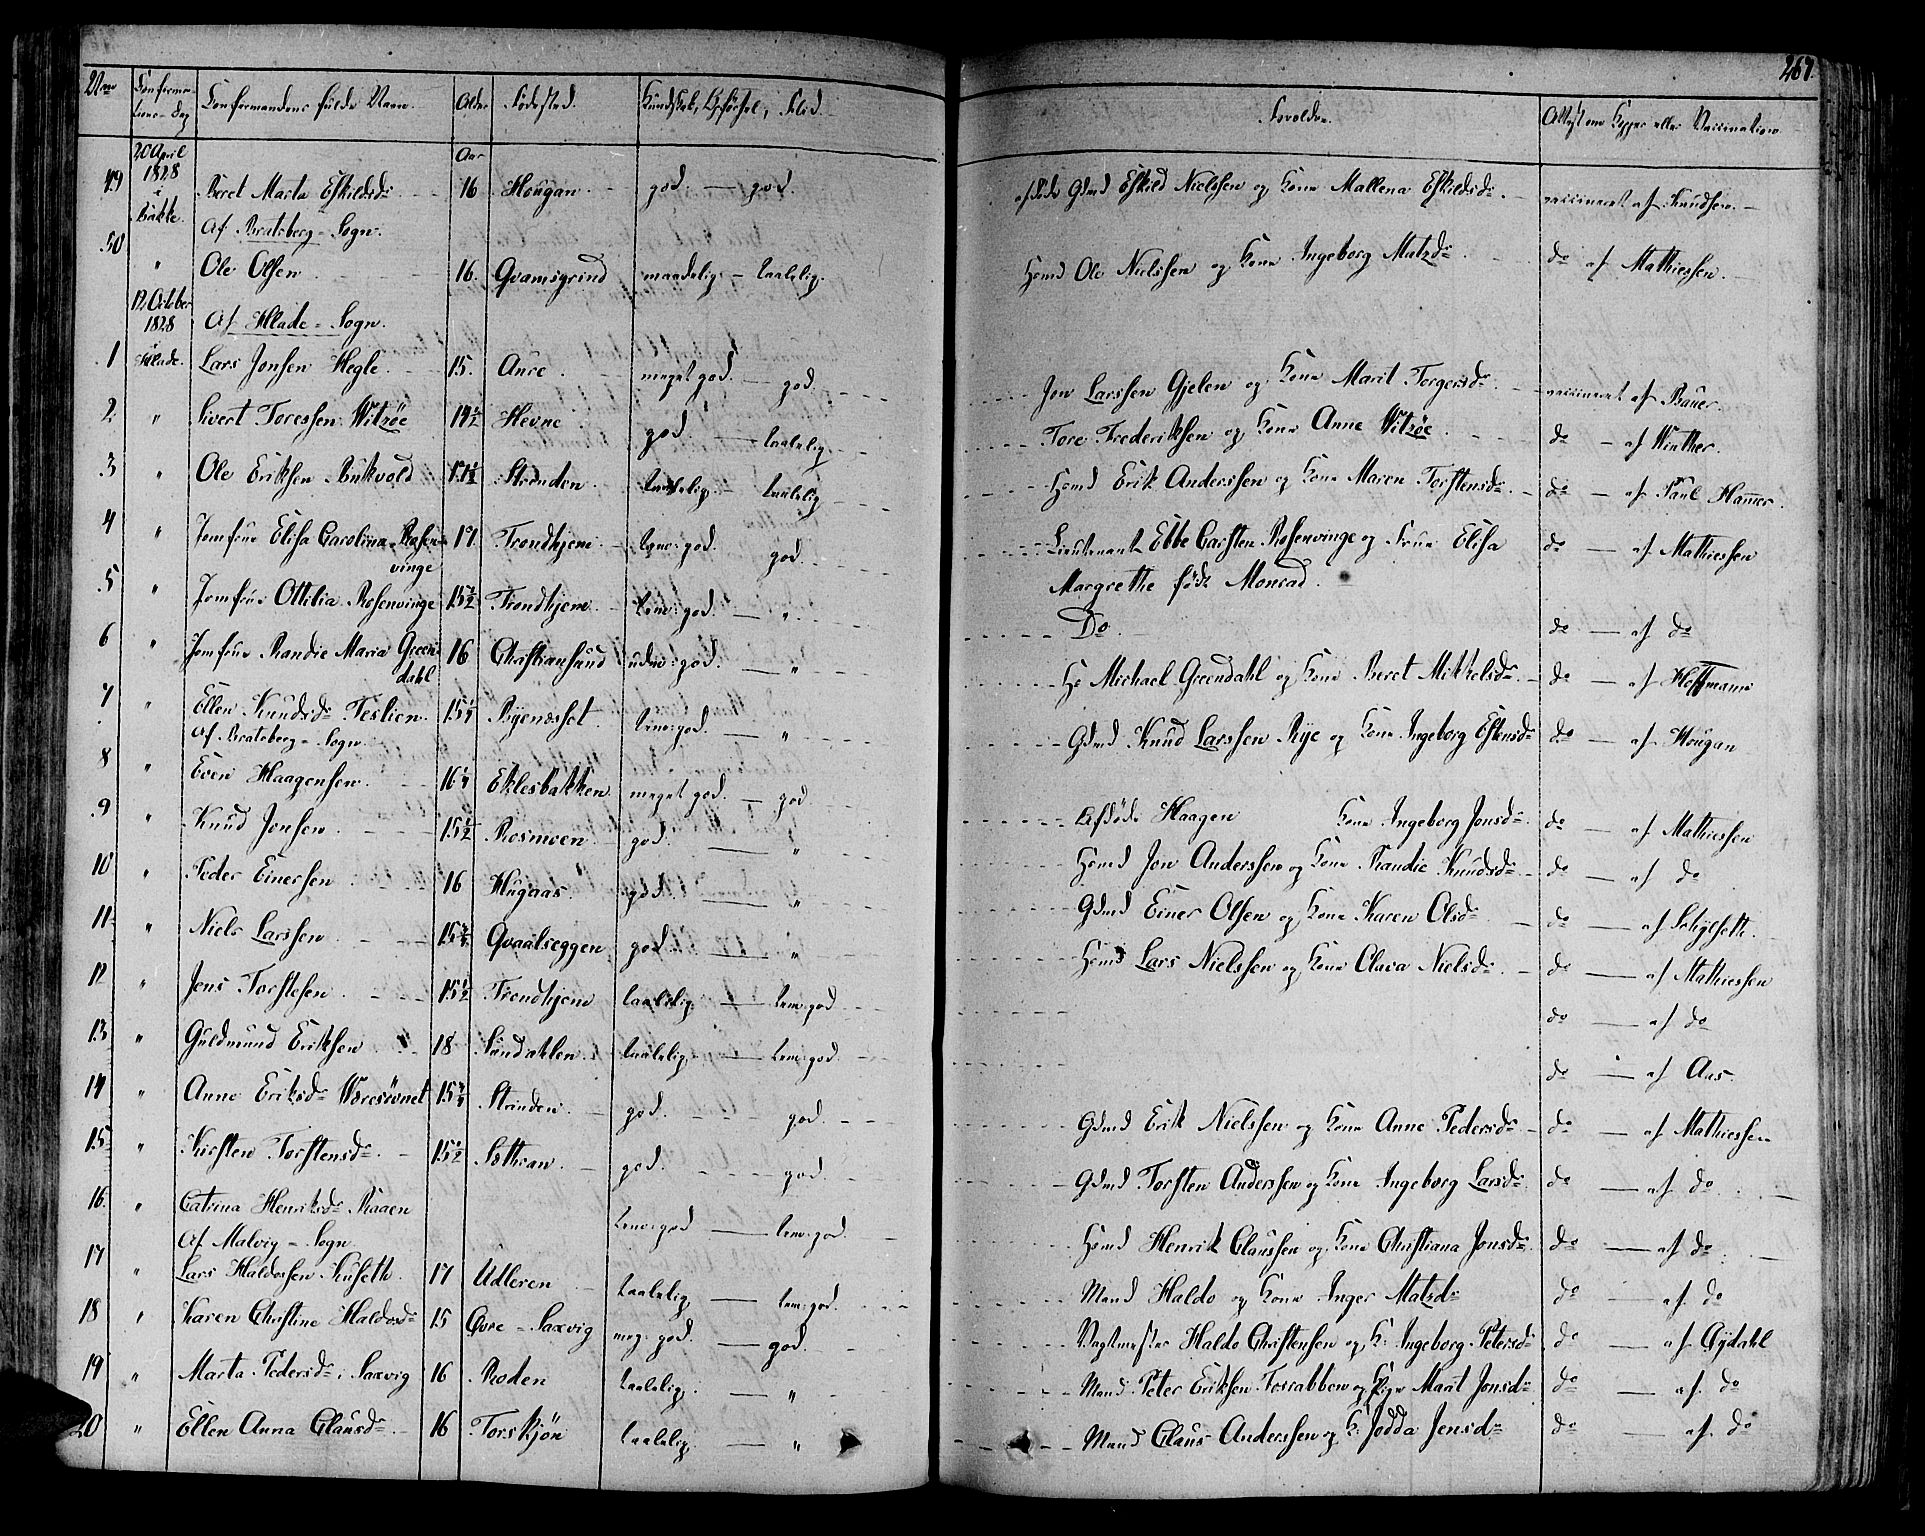 267.
Nro Confirma-tions-Dag Confirmandens fulde Navn. Alder Fødested. Kundskab, Opførsel, Flid. Forældre. Attest om Kopper eller Vaccination
20 April 1828 i Bakke. Aar
49 Beret Marta Eskildsdr 16 Hougan god. — god. afdøde Gdmd Eskild Nielssen og Kone Mallena Eskildsdr vaccineret af Knudsen.
Af Bratsberg-Sogn.
50 " Ole Olsen 16. Qvamsgrind maadelig — taalelig. Hsmd Ole Nielssen og Kone Ingeborg Matzdr do af Mathiessen.
12 October 1828 i Hlade. Af Hlade-Sogn.
1 Lars Jonsen Hegle 15. Aure meget god. — god. Jon Larssen Gjelen og Kone Marit Torgersdr vaccineret af Bauer.
2 " Sivert Toressen Witzøe 14½ Hevne god. — taalelig Tore Frederiksen og Kone Anne Witzøe do — af Winther.
3 " Ole Eriksen Bukvold Strinden taalelig — taalelig Hsmd Erik Anderssen og Kone Maren Torstensdr do — af Paul Hamer.
4 " Jomfrue Elisa Carolina Rosen-vinge 17 Trondhjem temgod. god. Lieutenant Ebbe Carsten Rosenvinge og Frue Elisa do — af Mathiessen
Margrethe født Monrad.
5 " Jomfrue Ottilia Rosenvinge 15½ Trondhjem tem:god. — " Do do — af do
6 " Jomfrue Randie Maria Green-dahl 16 Christiansund udm:god. — " Hr Michael Greendahl og Kone Beret Mikkelsdr do — af Hoffmann
7 " Ellen Knudsdr Teslien 15¼ Byenæsset tem:god. — " Gdmd Knud Larssen Rye og Kone Ingeborg Estensdr do — af Hougan
Af Bratsberg-Sogn.
8 " Even Haagensen 16¼ Eklesbakken meget god. — god Afdøde Haagen Kone Ingeborg Jonsdr do — af Mathiessen
9 " Knud Jonsen 15½ Rosmoen god. — " Hsmd Jon Anderssen og Kone Randie Knudsdr do — af do
10 " Peder Einersen 16 Hugaas god. — " Gdmd Einer Olsen og Kone Karen Olsdr do — af Selygseth.
11 " Niels Larssen 15¾ Qvaalseggen god. — " Hsmd Lars Nielssen og Kone Clara Nielsdr do — af Mathiessen
12 " Jens Torstesen 15½ Trondhjem taalelig — tem:god do — af do
13 " Guldmund Eriksen 18 Sundahlen taalelig — tem:god. do — af Aas.
14 " Anne Eriksdr Wæresøvnet 15¾ Strinden god. god. Gdmd Erik Nielssen og Kone Anne Pedersdr do — af Mathiessen
15 " Kirsten Torstensdr 15½ Sothran god. god. Gdmd Torsten Anderssen og Kone Ingeborg Larsdr do — af do
16. " Catrina Henriksdr Raaen tem:god — tem:god. Hsmd Henrik Claussen og Kone Christiana Jonsdr do — af do
Af Malvig-Sogn
17 " Lars Haldossen Kuseth 17 Udleren taalelig — tem:god. Mand Haldo og Kone Inger Matzdr do — af do
18 " Karen Christine Haldosdr 15 Øvre-Saxvig meg:god. — god. Vagtmester Haldo Christensen og K: Ingeborg Petersdr do — af Gydahl
19 " Marta Pedersdr i Saxvig 16 Roden taalelig. — " Mand Peter Eriksen Torrabben og Pige Marit Jonsdr do — af do
20 " Ellen Anna Clausdr 16 Torskjøn taalelig — " Mand Claus Anderssen og K: Jodda Jensdr do — af do